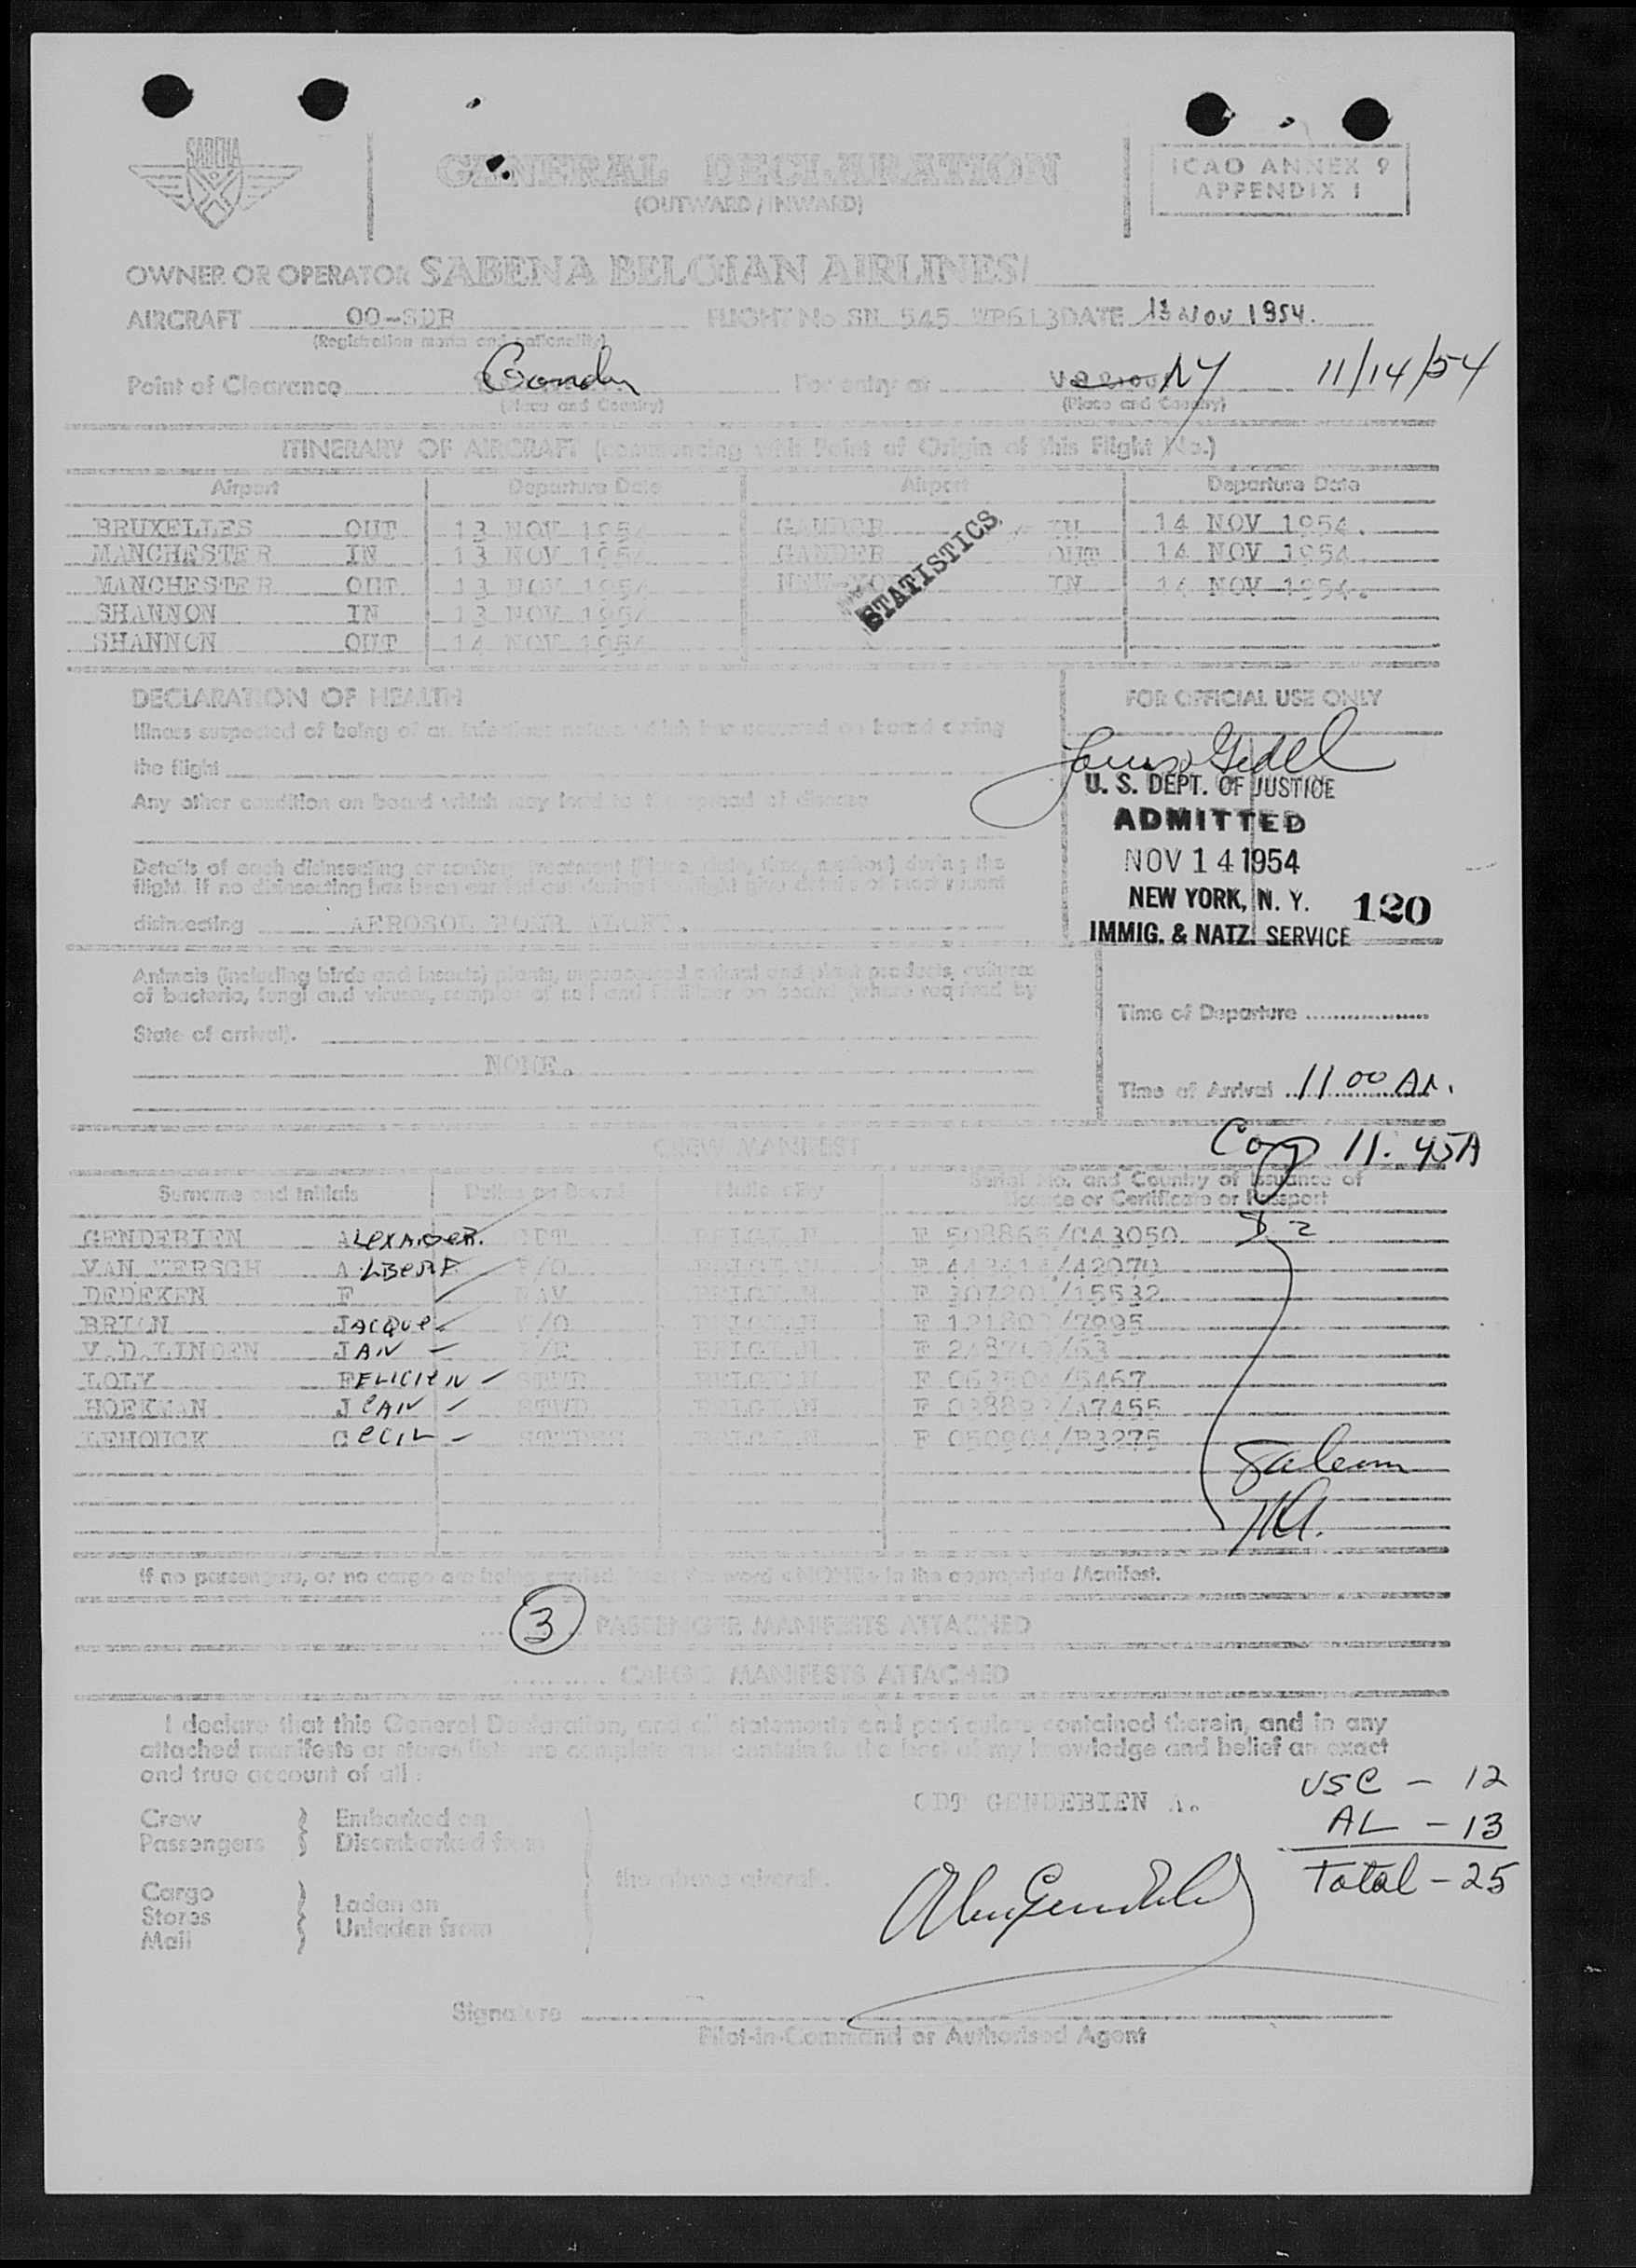 SABENA
GENERAL DECLARATION
(OUTWARD / INWARD)
ICAO ANNEX 9
APPENDIX 1
OWNER OR OPERATOR SABENA BELGIAN AIRLINES/
AIRCRAFT OO-SDB FLIGHT No SN 545 DATE 13 Nov 1954.
(Registration marks and nationality)
Point of Clearance Gander For entry at NY 11/14/54
(Place and Country) (Place and Country)
ITINERARY OF AIRCRAFT (commencing with Point of Origin of this Flight No.)
Airport Departure Date Airport Departure Date
BRUXELLES OUT 13 NOV 1954 GANDER IN 14 NOV 1954.
MANCHESTER IN 13 NOV 1954 GANDER OUT 14 NOV 1954
MANCHESTER OUT 13 NOV 1954 NEW-YO IN 14 NOV 1954.
SHANNON IN 13 NOV 1954
SHANNON OUT 14 NOV 1954
STATISTICS
DECLARATION OF HEALTH
Illness suspected of being of an infectious nature which has occurred on board during
the flight
Any other condition on board which may lead to the spread of disease
Details of each disinsecting or sanitary treatment (place, date, time, method) during the
flight. If no disinsecting has been carried out during the flight give details of most recent
disinsecting AEROSOL
Animals (including birds and insects) plants, unprocessed animal and plant products, cultures
of bacteria, fungi and viruses, samples of soil and fertilizer on board (where required by
State of arrival).
NONE.
FOR OFFICIAL USE ONLY
U. S. DEPT. OF JUSTICE
ADMITTED
NOV 14 1954
NEW YORK, N. Y. 120
IMMIG. & NATZ. SERVICE
Time of Departure
Time of Arrival 11 00 AM.
11. 45A
CREW MANIFEST
Surname and Initials Duties on Board Nationality Serial No. and Country of Issuance of
Licence or Certificate or Passport
GENDEBIEN ALEXANDER. CDT BELGIAN F 508865/CA3050 D 2
VAN MERSCH ALBERT F/O BELGIAN /42070
DEDEKEN F NAV BELGIAN /15532
BRIAN JACQUE R/O BELGIAN /7995
V.D.LINDEN JAN F/E BELGIAN /63
LOLY FELICIEN STWR BELGIAN /5467
HOEKMAN JEAN STWD BELGIAN /A7455
LEHOUCK CECIL STWDES BELGIAN F 050904/B3275
If no passengers, or no cargo are being carried, insert the word «NONE» in the appropriate Manifest.
3 PASSENGER MANIFESTS ATTACHED
CARGO MANIFESTS ATTACHED
I declare that this General Declaration, and all statements and particulars contained therein, and in any
attached manifests or stores lists are complete and contain to the best of my knowledge and belief an exact
and true account of all :
Crew Embarked on
Passengers Disembarked from
the above aircraft.
Cargo
Stores Laden on
Mail Unladen from
CDT GENDEBIEN A.
USC - 12
AL - 13
Total - 25
Signature
Pilot-in-Command or Authorised Agent